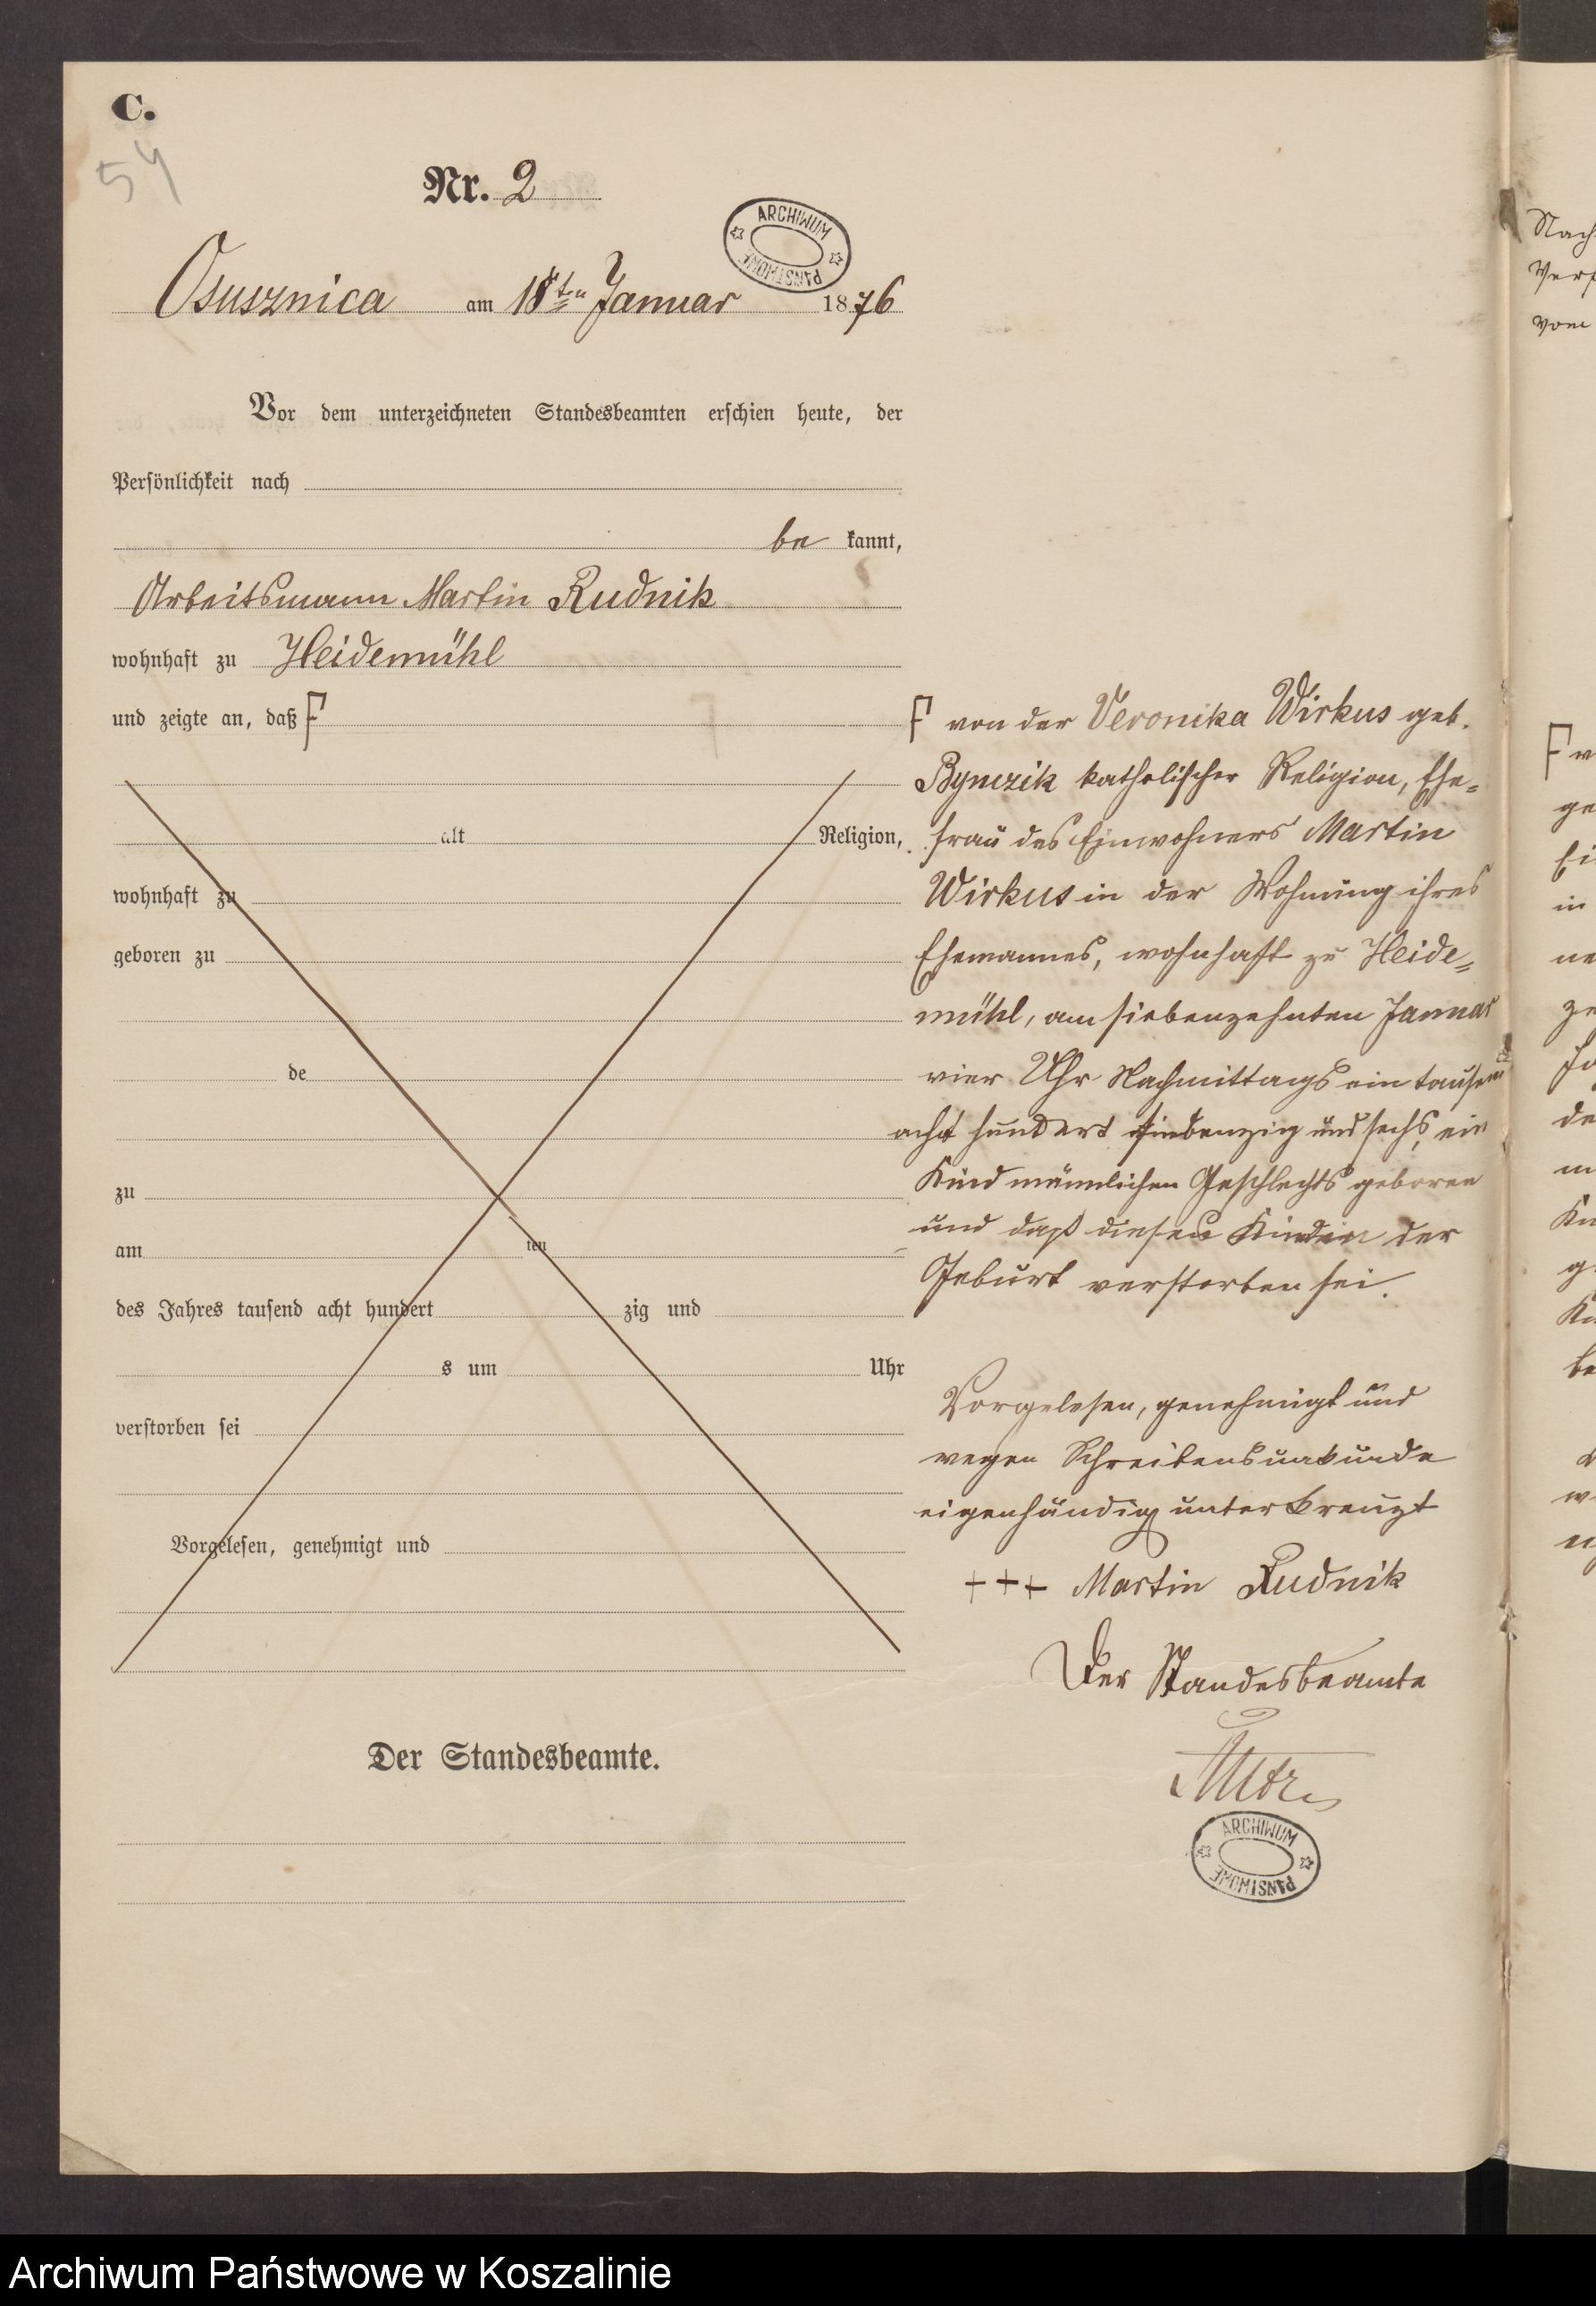 C.
54
Nr. 2
ARCHIWUM PAŃSTWOWE
Osusznica am 18ten Januar 1876
Vor dem unterzeichneten Standesbeamten erschien heute, der
Persönlichkeit nach
be kannt,
Arbeitsmann Martin Rudnik
wohnhaft zu Heidemühl
und zeigte an, daß F
alt Religion,
wohnhaft zu
geboren zu
de
zu
am ten
des Jahres tausend acht hundert zig und
s um Uhr
verstorben sei
Vorgelesen, genehmigt und
Der Standesbeamte.
F von der Veronika Wirkus geb.
katholischer Religion, Ehe=
frau des Einwohners Martin
Wirkus in der Wohnung ihres
Ehemannes, wohnhaft zu Heide=
mühl, am siebenzehnten Januar
vier Uhr Nachmittags ein tausend
acht hundert siebenzig und sechs, ein
Kind männlichen Geschlechts geboren
und daß dieses Kind in der
Geburt verstorben sei.
Vorgelesen, genehmigt und
wegen Schreibensunkunde
eigenhändig unterkreuzt
+++ Martin Rudnik
Der Standesbeamte
ARCHIWUM PAŃSTWOWE
Nach
Verf
vom
F v
ge
Ei
in
ne
ze
de
m
g
be
w
Archiwum Państwowe w Koszalinie